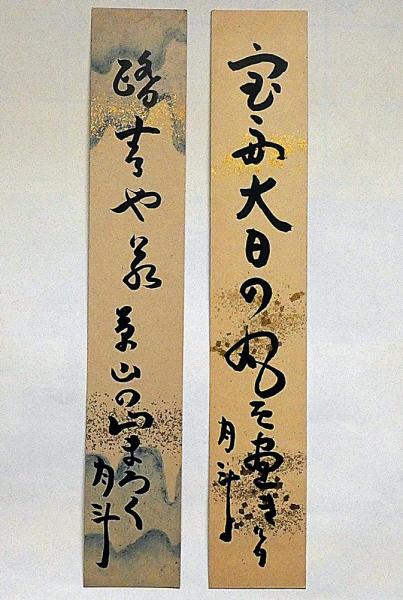 宝舟大日の丸を畫きけり
月斗
踏青や若草山の山まろく
月斗